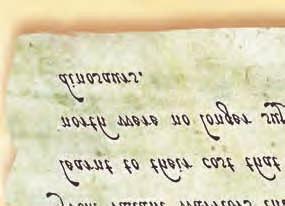 from valiant warriors
learnt to their cost that
north were no longer
dinosaurs.